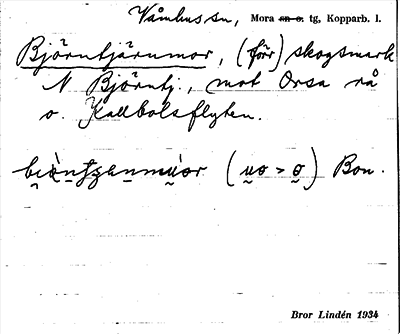 Våmhus sn, Mora sn o. tg, Kopparb. l.
Björntjärnmor, (för) skogsmark
N Björntj., mot Orsa rå
o. Kallbolsflyten.
(uo > o) Bon.
Bror Lindén 1934